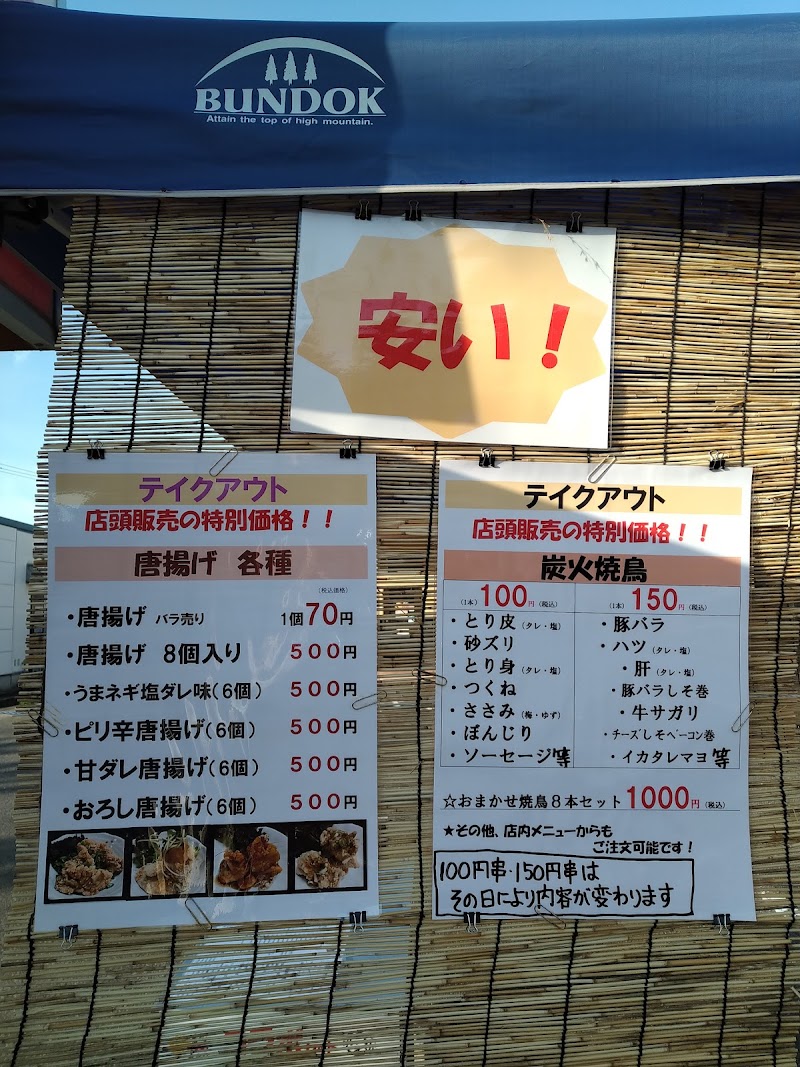 BUNDOK
Attain the top of high mountain.
安い！
テイクアウト
店頭販売の特別価格！！
唐揚げ 各種
（税込価格）
・唐揚げ バラ売り 1個70円
・唐揚げ 8個入り 500円
・うまネギ塩ダレ味（6個） 500円
・ピリ辛唐揚げ（6個） 500円
・甘ダレ唐揚げ（6個） 500円
・おろし唐揚げ（6個） 500円
テイクアウト
店頭販売の特別価格！！
炭火焼鳥
（1本）100円（税込）
・とり皮（タレ・塩）
・砂ズリ
・とり身（タレ・塩）
・つくね
・ささみ（梅・ゆず）
・ぼんじり
・ソーセージ等
（1本）150円（税込）
・豚バラ
・ハツ（タレ・塩）
・肝（タレ・塩）
・豚バラしそ巻
・牛サガリ
・チーズしそベーコン巻
・イカタレマヨ等
☆おまかせ焼鳥8本セット1000円（税込）
★その他、店内メニューからも
ご注文可能です！
100円串・150円串は
その日により内容が変わります